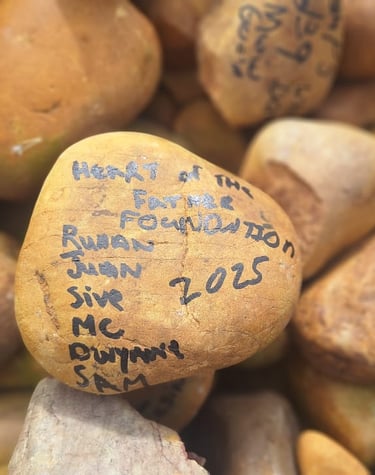 HEART of THE
Father
FOUNDATION
RUHAN
JUAN
Sive
MC
DWYANE
SAM
2025